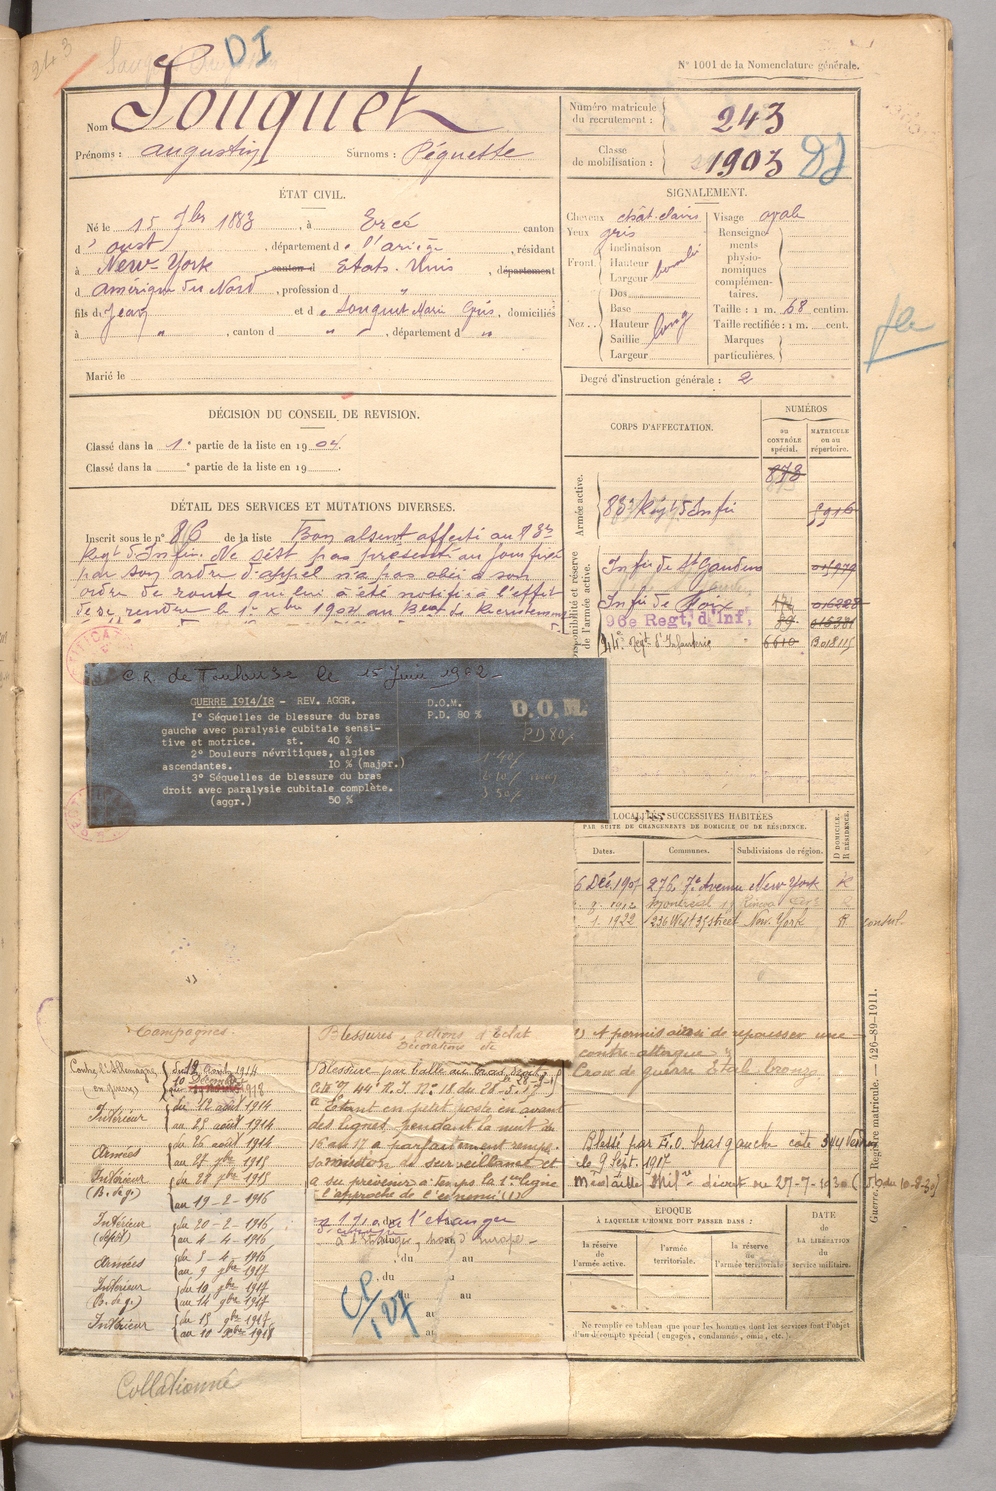 243
DI
N° 1001 de la Nomenclature générale.
Nom Souquet
Prénoms : Augustin Surnoms : Péguette
Numéro matricule du recrutement : 243
Classe de mobilisation : 1903 DI
ÉTAT CIVIL.
Né le 15 7bre 1883, à Ercé canton
d'oust, département de l'ariège, résidant
à New-York canton d Etats-Unis, département
d amérique du Nord, profession d "
fils de Jean et de Souquet Marie, domiciliés
à ", canton d ", département d "
Marié le
SIGNALEMENT.
Cheveux chât. clairs
Yeux gris
Front Inclinaison Hauteur Largeur bombé
Nez Dos Base Hauteur Saillie Largeur long
Visage ovale
Renseignements physionomiques complémentaires.
Taille : 1 m. 68 centim.
Taille rectifiée : 1 m. cent.
Marques particulières.
Degré d'instruction générale : 2
DÉCISION DU CONSEIL DE REVISION.
Classé dans la 1e partie de la liste en 1904.
Classé dans la e partie de la liste en 19 .
DÉTAIL DES SERVICES ET MUTATIONS DIVERSES.
Inscrit sous le n° 86 de la liste Bon absent affecté au 83e
Régt d'Infie. Ne s'est pas présenté au jour fixé
par son ordre d'appel n'a pas obéi à son
ordre de route qui lui a été notifié à l'effet
de se rendre le 1er Xbre 1904 au Beau de Recrutement
CORPS D'AFFECTATION.
NUMÉROS
au CONTRÔLE spécial.
MATRICULE ou au répertoire.
Armée active.
83e Régt d'Infie
878
Disponibilité et réserve de l'armée active.
Infie de St Gaudens
Infie de Foix
96e Regt, d'Inf,
44e Régt d'Infanterie 6610
C.R de Toulouse le 15 Juin 1932
GUERRE 1914/18 - REV. AGGR.
1° Séquelles de blessure du bras
gauche avec paralysie cubitale sensi-
tive et motrice. st. 40 %
2° Douleurs névritiques, algies
ascendantes. 10 % (major.)
3° Séquelles de blessure du bras
droit avec paralysie cubitale complète.
(aggr.) 50 %
D.O.M.
P.D. 80 %
D.O.M.
PD 80%
LOCALITÉS SUCCESSIVES HABITÉES
PAR SUITE DE CHANGEMENTS DE DOMICILE OU DE RÉSIDENCE.
Dates. Communes. Subdivisions de région. D DOMICILE. R RÉSIDENCE.
6 Déc. 1907 276, 7e Avenue New York R
1912 Montréal
1. 1922 236 West 37 Street New-York R consul.
Campagnes.
Blessures, actions d'Eclat
Décorations etc
Contre l'Allemagne du 12 août 1914
(en guerre)
Intérieur du 12 août 1914
au 25 août 1914
Armées du 26 août 1914
au 27 9bre 1915
Intérieur du 28 9bre 1915
(B. de g.) au 19-2-1916
Intérieur du 20-2-1916
(dépôt) au 4-4-1916
Armées du 5-4-1916
au 9 9bre 1917
Intérieur du 10 9bre 1917
(B. de g.) au 14 9bre 1917
Intérieur du 15 9bre 1917
au 10 Xbre 1918
Blessure par balle au bras droit
Cité O/ 44e R.I. N° 18 du 28-5-17
"Etant en petit poste en avant
des lignes pendant la nuit du
16 au 17 a parfaitement rempli
sa mission de surveillance et
a su prévenir à temps la 1ere ligne
l'approche de l'ennemi (1)
(1) A permis ainsi de repousser une
contre-attaque"
Croix de guerre Etoile bronze
Blessé par E.O. bras gauche côte 344 Verdun
le 9 Sept. 1917
Médaille Milre décret du 27-7-1930 (J.O. du 10-8-30)
l'étranger
, du au
, du au
CP/107
ÉPOQUE
À LAQUELLE L'HOMME DOIT PASSER DANS :
la réserve de l'armée active.
l'armée territoriale.
la réserve de l'armée territoriale
DATE DE LA LIBÉRATION DU service militaire.
Ne remplir ce tableau que pour les hommes dont les services font l'objet
d'un décompte spécial (engagés, condamnés, omis, etc.
Guerre. Registre matricule. — 426-89-1911.
Collationné